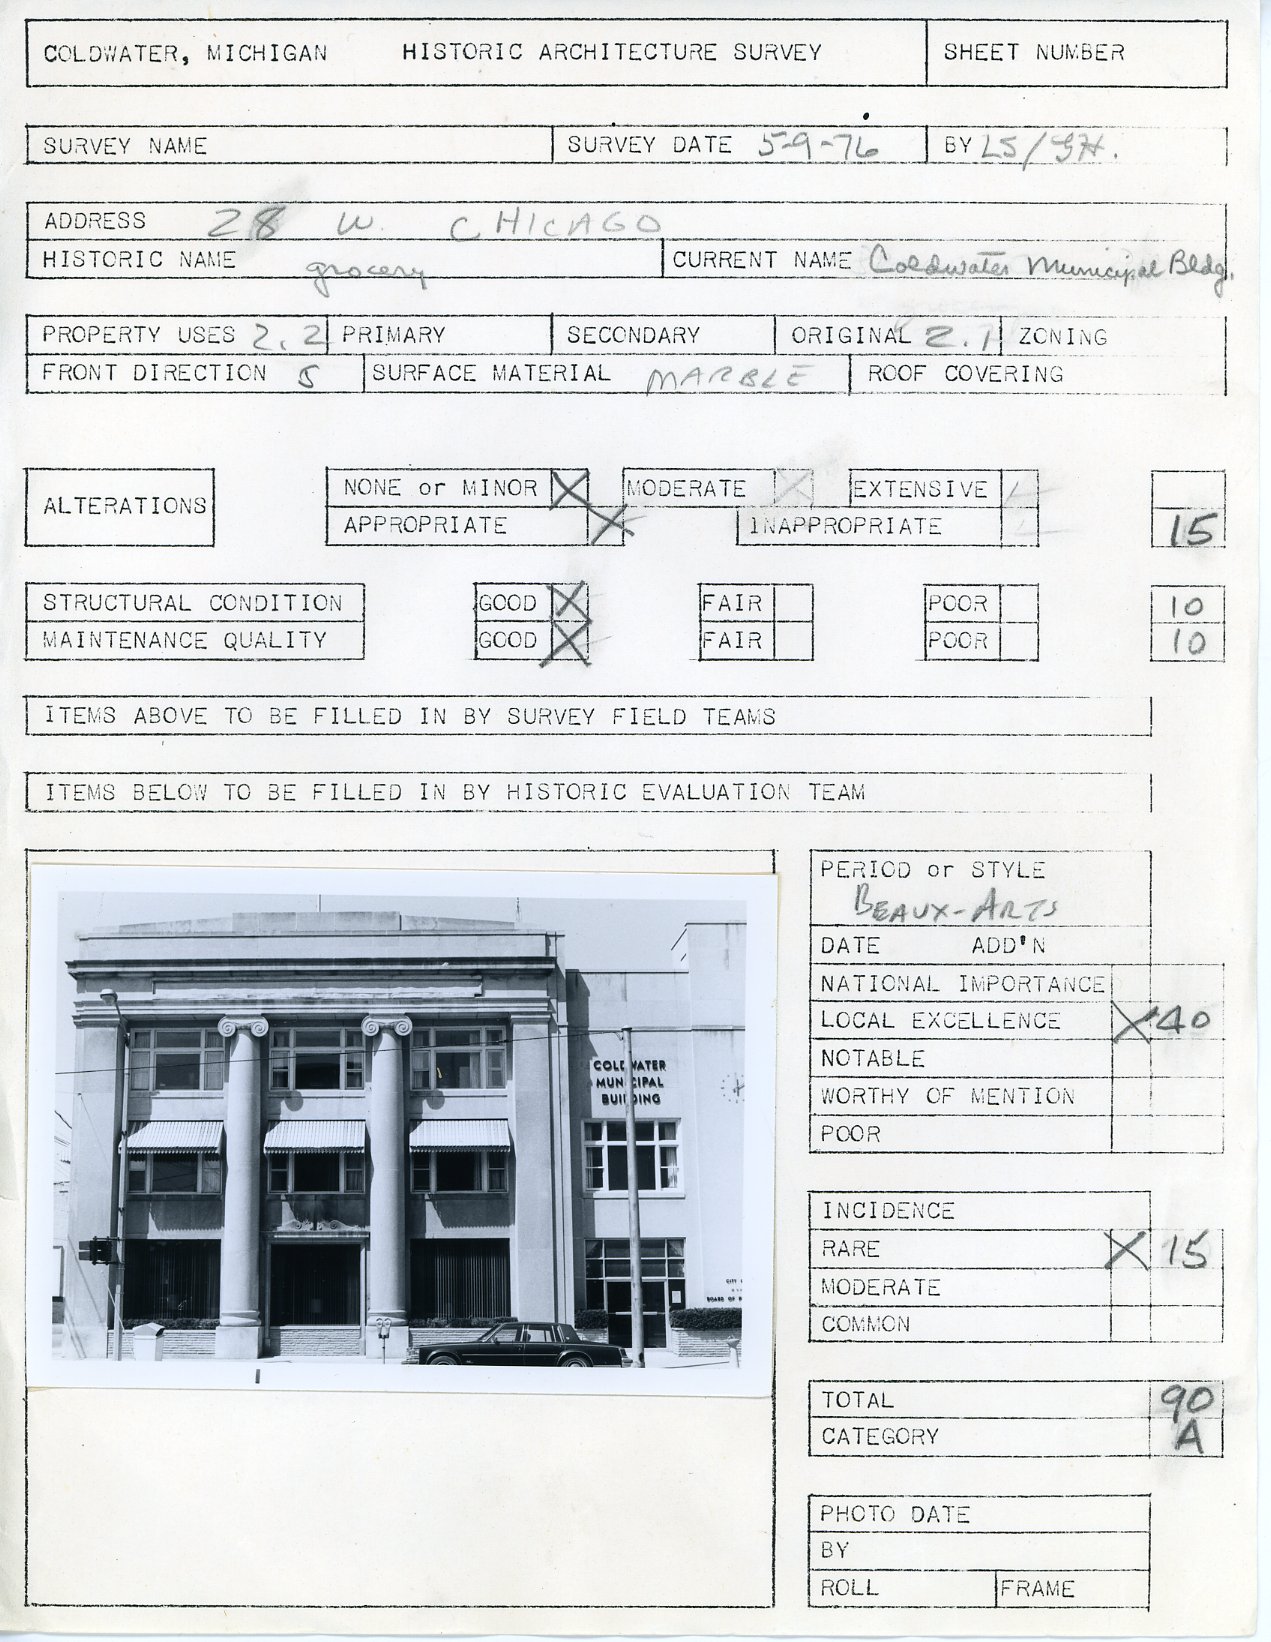 COLDWATER, MICHIGAN HISTORIC ARCHITECTURE SURVEY SHEET NUMBER
SURVEY NAME SURVEY DATE 5-9-76 BY LS/GH.
ADDRESS 28 W. CHICAGO
HISTORIC NAME grocery CURRENT NAME Coldwater Municipal Bldg.
PROPERTY USES 2.2 PRIMARY SECONDARY ORIGINAL 2.1 ZONING
FRONT DIRECTION S SURFACE MATERIAL MARBLE ROOF COVERING
ALTERATIONS NONE or MINOR X MODERATE X EXTENSIVE
APPROPRIATE X INAPPROPRIATE 15
STRUCTURAL CONDITION GOOD X FAIR POOR 10
MAINTENANCE QUALITY GOOD X FAIR POOR 10
ITEMS ABOVE TO BE FILLED IN BY SURVEY FIELD TEAMS
ITEMS BELOW TO BE FILLED IN BY HISTORIC EVALUATION TEAM
COLDWATER
MUNICIPAL
BUILDING
CITY
BOARD OF
PERIOD or STYLE
BEAUX-ARTS
DATE ADD'N
NATIONAL IMPORTANCE
LOCAL EXCELLENCE X 40
NOTABLE
WORTHY OF MENTION
POOR
INCIDENCE
RARE X 15
MODERATE
COMMON
TOTAL 90
CATEGORY A
PHOTO DATE
BY
ROLL FRAME